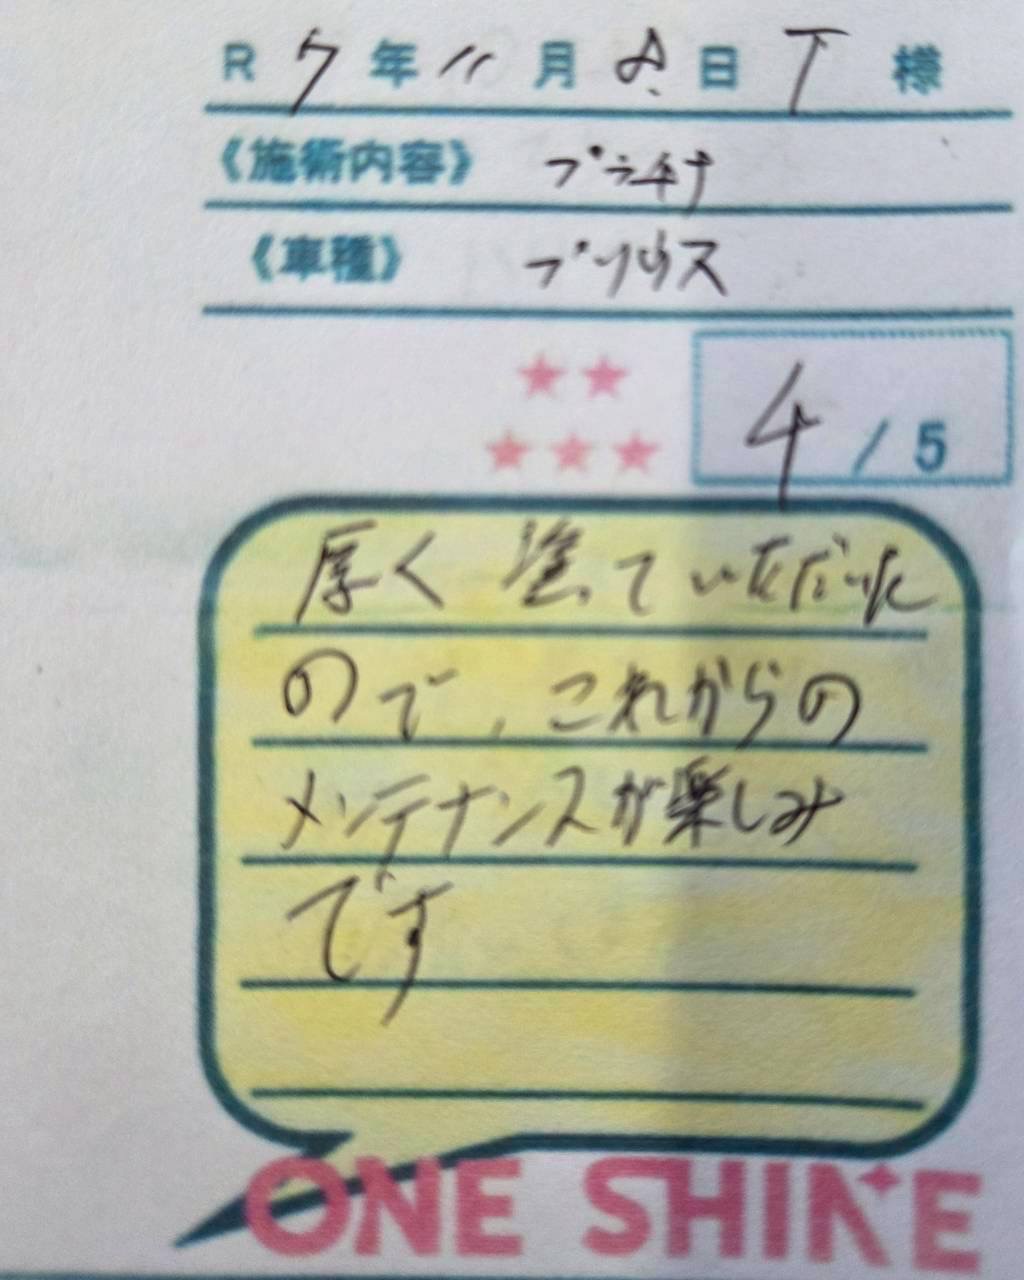 R 7年11月8日 T 様
《施術内容》 プラチナ
《車種》 プリウス
4/5
厚く塗っていただいた
ので、これからの
メンテナンスが楽しみ
です
ONE SHINE